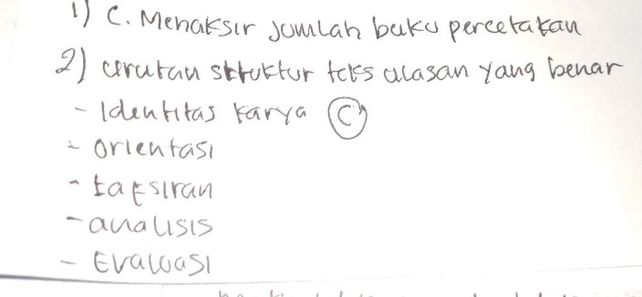 1) C. Menaksir jumlah buku percetakan
2) urutan struktur teks ulasan yang benar
- Identitas karya C
- orientasi
- tafsiran
- analisis
- Evaluasi